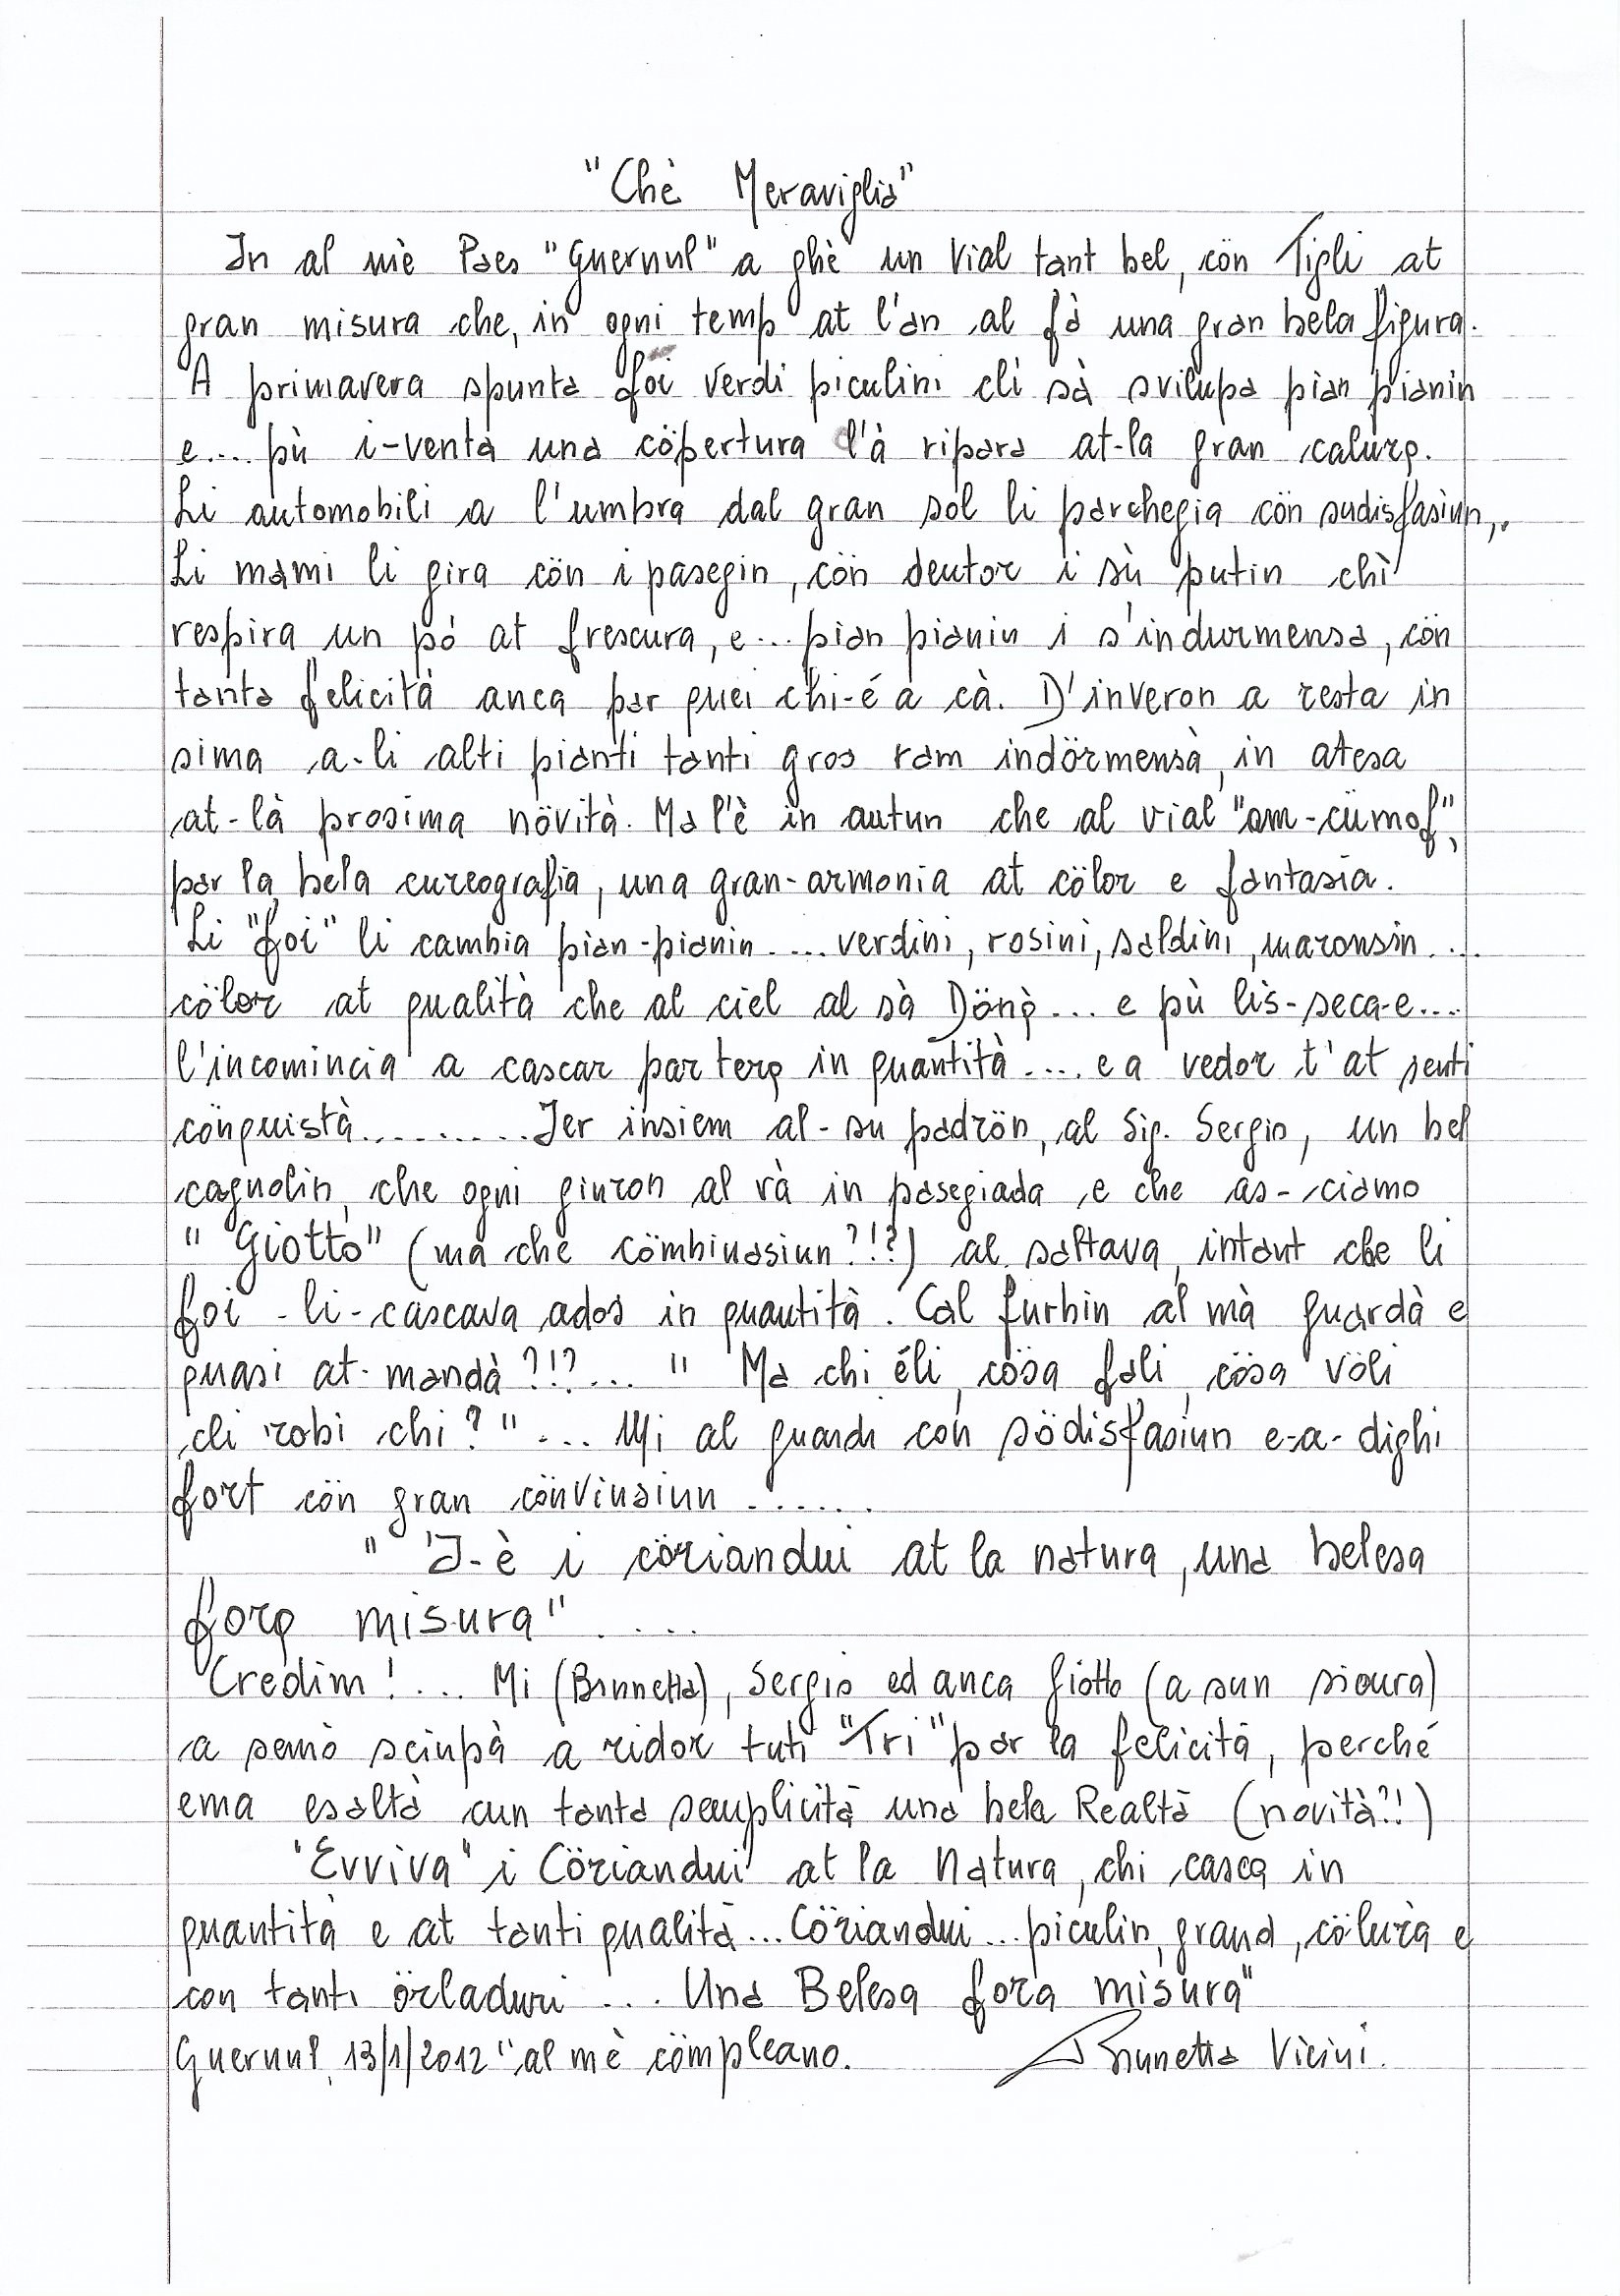 "Chè Meraviglia"
In al mè Paes "Guernul" a ghè un vial tant bel, cön Tigli at
gran misura che, in ogni temp at l'an al fà una gran bela figura.
A primavera spunta foi verdi piculini cli sà svilupa pian pianin
e.... pù i-venta una cöpertura l'à ripara at-la gran calura.
Li automobili a l'umbra dal gran sol li parchegia cön sudisfasiun,.
Li mami li gira cön i pasegin, cön deutor i sù putin chi
respira un pó at frescura, e... pian pianin i s'indurmensa, cön
tanta felicità anca par quei chi-é a cà. D'inveron a resta in
sima a-li alti pianti tanti gros ram indörmensà, in atesa
at-là prosima növità. Ma l'è in autun che al vial "am-cümof",
par la bela cureografia, una gran-armonia at cölor e fantasia.
Li "foi" li cambia pian-pianin.... verdini, rosini, saldini, maronsin...
cölor at qualità che al ciel al sà Dönà... e pù lis-seca-e....
l'incomincia a cascar par tera in quantità.... e a vedor t'at senti
cönquistà.......... Jer insiem al-su padrön, al Sig. Sergio, un bel
cagnolin, che ogni giuron al và in pasegiada e che as-ciamo
"Giotto" (ma che cömbinasiun?!?) al saltava, intant che li
foi -li-cascava ados in quantità. Cal furbin al mà guardà e
quasi at-mandà?!?... "Ma chi éli, cösa fali, cösa völi
cli robi chi?"... Mi al guardi con södisfasiun e-a-dighi
fort cön gran cönvinsiun.......
"I-è i cöriandui at la natura, una belesa
fora misura"....
Credim!... Mi (Brunetta), Sergio ed anca Giotto (a sun sicura)
a semò sciupà a ridor tuti "Tri" par la felicità, perché
ema esaltà cun tanta semplicità una bela Realtà (novità?!)
"Evviva" i Cöriandui at la Natura, chi casca in
quantità e at tanti qualità... Cöriandui... piculin, grand, cölurà e
con tanti örladuri... Una Belesa fora misura"
Guernul, 13/1/2012 "al mè cömpleano. Brunetta Vicini.